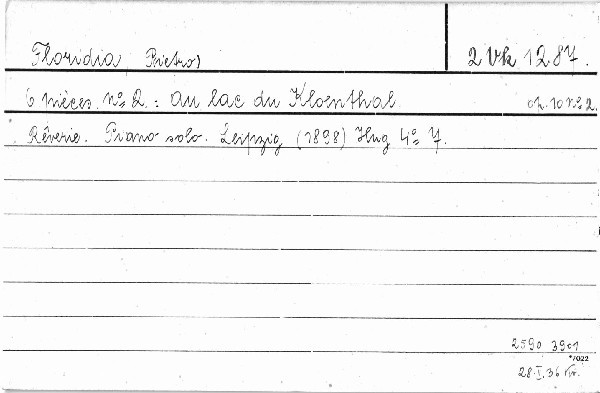 Floridia Pietro) 2 Vk 1287.
6 pièces. No 2. : Au lac du Kloenthal. op. 10 No 2.
Rêverie. Piano solo. Leipzig (1898) Hug 4o 7.
2590 39c1
*/022
28.I.36